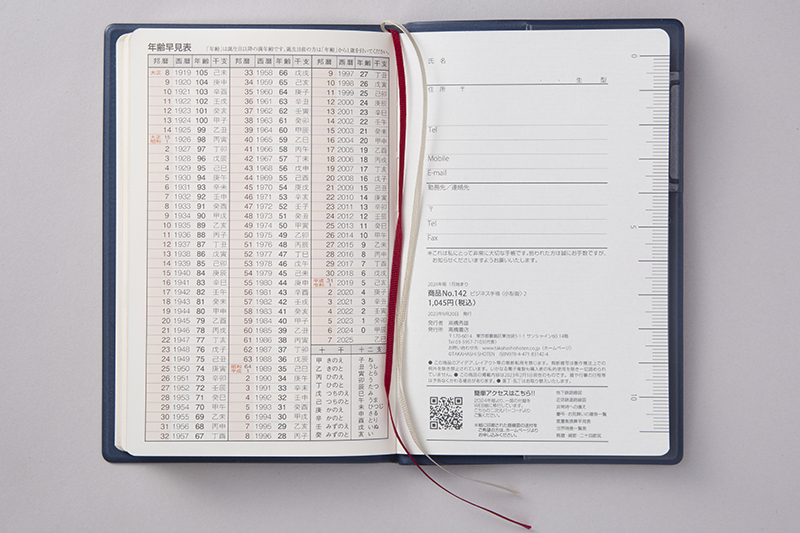 年齢早見表 「年齢」は誕生日以降の満年齢です。誕生日前の方は「年齢」から1歳を引いてください。
邦暦 西暦 年齢 干支 邦暦 西暦 年齢 干支 邦暦 西暦 年齢 干支
大正 8 1919 105 己未 33 1958 66 戊戌 9 1997 27 丁丑
9 1920 104 庚申 34 1959 65 己亥 10 1998 26 戊寅
10 1921 103 辛酉 35 1960 64 庚子 11 1999 25 己卯
11 1922 102 壬戌 36 1961 63 辛丑 12 2000 24 庚辰
12 1923 101 癸亥 37 1962 62 壬寅 13 2001 23 辛巳
13 1924 100 甲子 38 1963 61 癸卯 14 2002 22 壬午
14 1925 99 乙丑 39 1964 60 甲辰 15 2003 21 癸未
大正 15 昭和 1 1926 98 丙寅 40 1965 59 乙巳 16 2004 20 甲申
2 1927 97 丁卯 41 1966 58 丙午 17 2005 19 乙酉
3 1928 96 戊辰 42 1967 57 丁未 18 2006 18 丙戌
4 1929 95 己巳 43 1968 56 戊申 19 2007 17 丁亥
5 1930 94 庚午 44 1969 55 己酉 20 2008 16 戊子
6 1931 93 辛未 45 1970 54 庚戌 21 2009 15 己丑
7 1932 92 壬申 46 1971 53 辛亥 22 2010 14 庚寅
8 1933 91 癸酉 47 1972 52 壬子 23 2011 13 辛卯
9 1934 90 甲戌 48 1973 51 癸丑 24 2012 12 壬辰
10 1935 89 乙亥 49 1974 50 甲寅 25 2013 11 癸巳
11 1936 88 丙子 50 1975 49 乙卯 26 2014 10 甲午
12 1937 87 丁丑 51 1976 48 丙辰 27 2015 9 乙未
13 1938 86 戊寅 52 1977 47 丁巳 28 2016 8 丙申
14 1939 85 己卯 53 1978 46 戊午 29 2017 7 丁酉
15 1940 84 庚辰 54 1979 45 己未 30 2018 6 戊戌
16 1941 83 辛巳 55 1980 44 庚申 平成 31 令和 1 2019 5 己亥
17 1942 82 壬午 56 1981 43 辛酉 2 2020 4 庚子
18 1943 81 癸未 57 1982 42 壬戌 3 2021 3 辛丑
19 1944 80 甲申 58 1983 41 癸亥 4 2022 2 壬寅
20 1945 79 乙酉 59 1984 40 甲子 5 2023 1 癸卯
21 1946 78 丙戌 60 1985 39 乙丑 6 2024 0 甲辰
22 1947 77 丁亥 61 1986 38 丙寅 7 2025 乙巳
23 1948 76 戊子 62 1987 37 丁卯 十干 十二支
24 1949 75 己丑 63 1988 36 戊辰 甲 きのえ 子 ね
25 1950 74 庚寅 昭和 64 平成 1 1989 35 己巳 乙 きのと 丑 うし
26 1951 73 辛卯 2 1990 34 庚午 丙 ひのえ 寅 とら
27 1952 72 壬辰 3 1991 33 辛未 丁 ひのと 卯 う
28 1953 71 癸巳 4 1992 32 壬申 戊 つちのえ 辰 たつ
29 1954 70 甲午 5 1993 31 癸酉 己 つちのと 巳 み
30 1955 69 乙未 6 1994 30 甲戌 庚 かのえ 午 うま
31 1956 68 丙申 7 1995 29 乙亥 辛 かのと 未 ひつじ
32 1957 67 丁酉 8 1996 28 丙子 壬 みずのえ 申 さる
癸 みずのと 酉 とり
戌 いぬ
亥 い
氏名
生 型
住所 〒
Tel
Mobile
E-mail
勤務先／連絡先
〒
Tel
Fax
※これは私にとって非常に大切な手帳です。拾われた方は誠にお手数ですが、
お知らせくださいますようお願いいたします。
2024年版 1月始まり
商品No.142 ビジネス手帳〈小型版〉2
1,045円(税込)
2023年9月20日 発行
発行者 髙橋秀雄
発行所 髙橋書店
〒170-6014 東京都豊島区東池袋3-1-1 サンシャイン60 14階
Tel 03-5957-7103(代表)
お問い合わせ先 www.takahashishoten.co.jp/
©TAKAHASHI SHOTEN ISBN978-4-471-81142-8
簡単アクセスはこちら!!
0
5
10